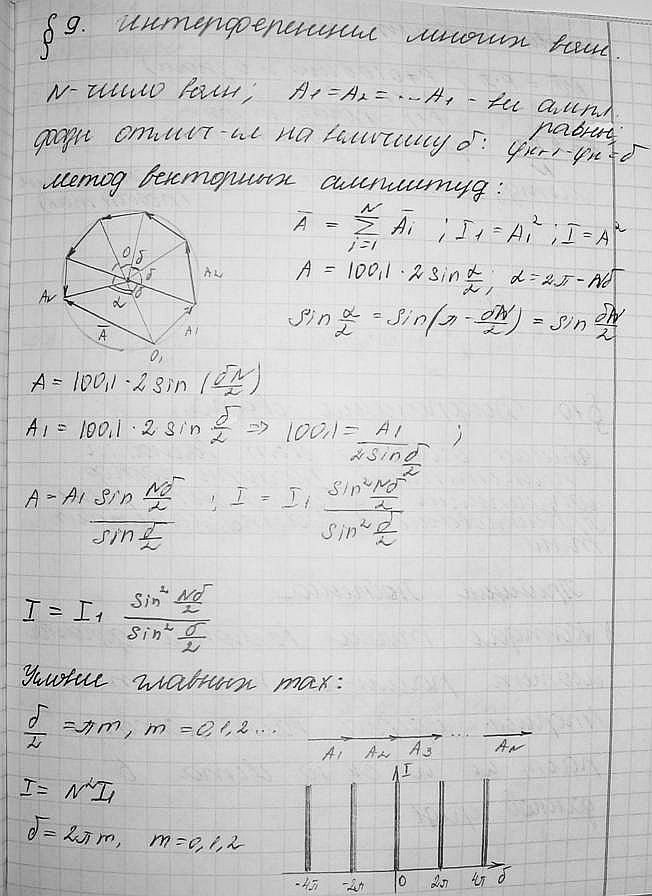 § 9. Интерференция многих волн.
N-число волн; A₁=A₂=...A₁ - все ампл. равны;
фазы отлич-ся на величину δ: φк+1-φк=δ
метод векторных амплитуд:
O δ δ δ α A₂ A₁ Aₙ A̅ O₁
A̅ = ∑ᵢ₌₁ᴺ A̅ᵢ ; I₁=A₁² ; I=A²
A = |OO₁| · 2 sin α/2 ; α=2π-Nδ
sin α/2 = sin(π - δN/2) = sin δN/2
A = |OO₁| · 2 sin (δN/2)
A₁ = |OO₁| · 2 sin δ/2 => |OO₁| = A₁ / 2 sin δ/2 ;
A = A₁ sin Nδ/2 / sin δ/2 ; I = I₁ sin² Nδ/2 / sin² δ/2
I = I₁ sin² Nδ/2 / sin² δ/2
Условие главных max:
δ/2 = πm, m = 0,1,2...
A₁ A₂ A₃ ... Aₙ
I = N²I₁
δ = 2πm, m=0,1,2
I
-4π -2π 0 2π 4π δ